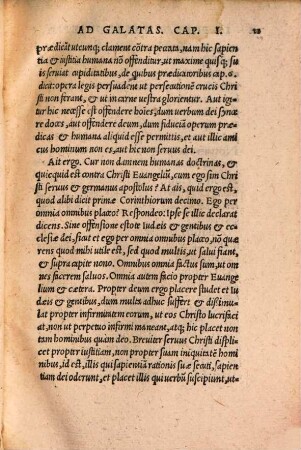 AD GALATAS. CAP. I.
prædicãt utcunq; clament cõtra peccata, nam hic sapien
tia & iustitia humana nõ offenditur, ut maxime quisq; su
is seruiat cupiditatibus, de quibus prædicatoribus cap. 6.
dicit: opera legis persuadent ut persecutionẽ crucis Chri
sti non ferant, & ut in carne uestra glorientur. Aut igi
tur hic necesse est offendere hoĩes, dum uerbum dei synæ
re doces, aut offendere deum, dum fiduciã operum præ-
dicas & humana aliquid esse permittis, et aut illic ami
cus hominum non es, aut hic non seruus dei.
Ait ergo. Cur non damnem humanas doctrinas, &
quicquid est contra Christi Euangeliũ, cum ego sim Chri
sti seruus & germanus apostolus? At ais, quid ergo est,
quod alibi dicit primæ Corinthiorum decimo. Ego per
omnia omnibus placeo? Respondeo: Ipse se illic declarat
dicens. Sine offensione estote Iudæis & gentibus & ec
clesiæ dei, sicut et ego per omnia omnibus placeo, nõ quæ
rens quod mihi utile est, sed quod multis, ut salui fiant,
& supra capite nono. Omnibus omnia factus sum, ut om
nes facerem saluos. Omnia autem facio propter Euange
lium & cætera. Propter deum ergo placere studet et Iu
dæis & gentibus, dum multa adhuc suffert & dissimu
lat propter infirmitatem eorum, ut eos Christo lucrifaci
at, non ut perpetuo infirmi maneant, atq; hic placet non
tam hominibus quam deo. Breuiter seruus Christi displi
cet propter iustitiam, non propter suam iniquitatẽ homi
nibus, id est, illis qui sapientiã rationis suæ secuti, sapien-
tiam dei oderunt, et placet illis qui uerbũ suscipiunt, ut-